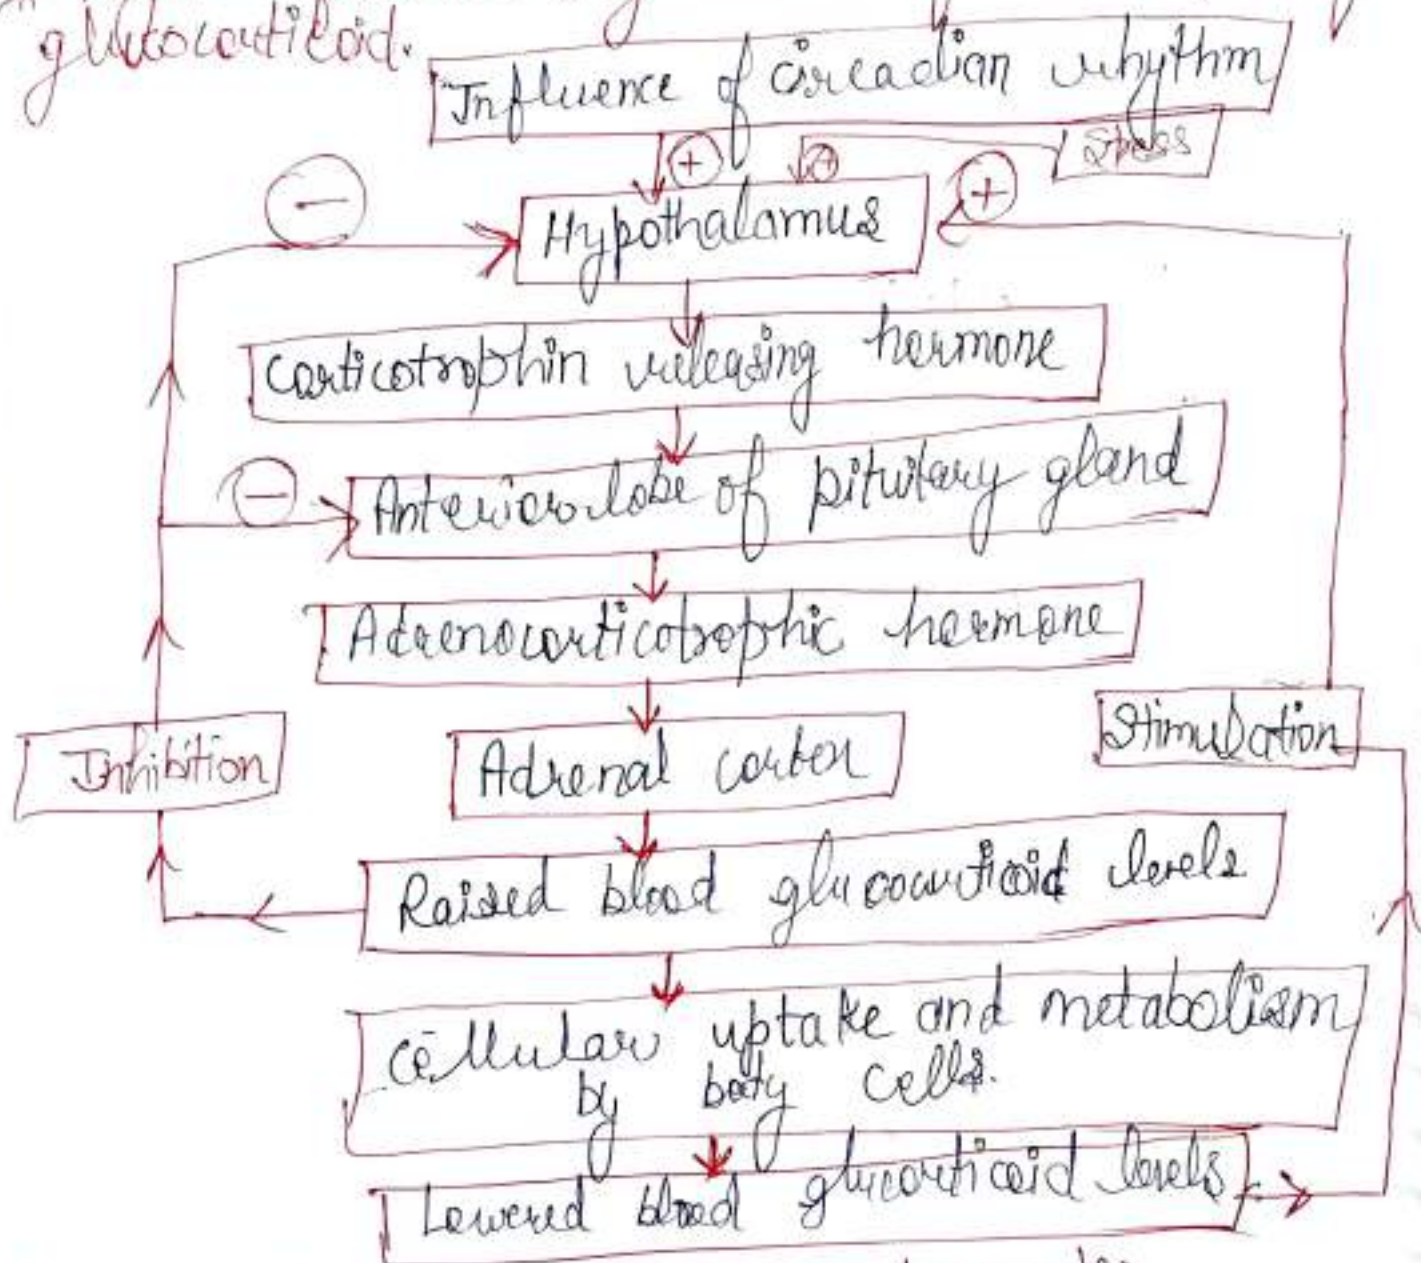 glucocorticoid.
Influence of circadian rhythm
Stress
+
+
−
+
Hypothalamus
Corticotrophin releasing hormone
−
Anterior lobe of pituitary gland
Adrenocorticotrophic hormone
Inhibition
Adrenal cortex
Stimulation
Raised blood glucocorticoid levels
Cellular uptake and metabolism
by body cells.
Lowered blood glucorticoid levels